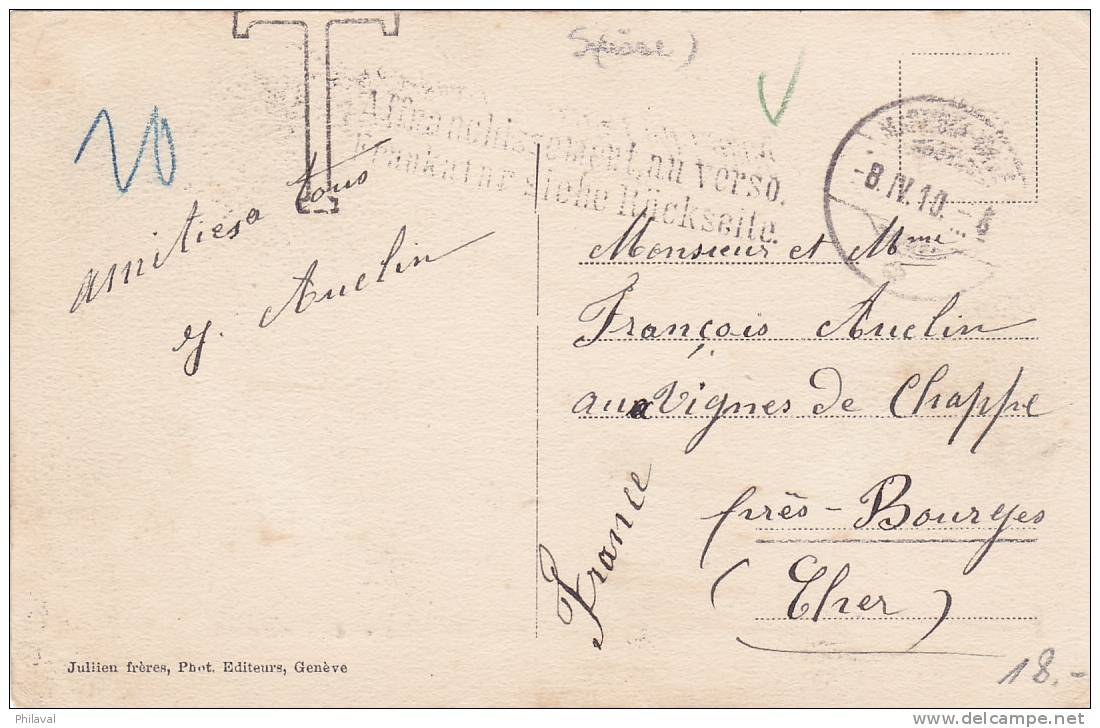 T
20
Affranchissement au verso.
Frankatur siehe Rückseite.
-8.IV.10.-
amities a tous
y. Auclin
Monsieur et Mme
François Auclin
aux Vignes de Chappe
près - Bourges
(Cher)
France
Jullien frères, Phot. Editeurs, Genève
18.-
Philaval
delcampe.net